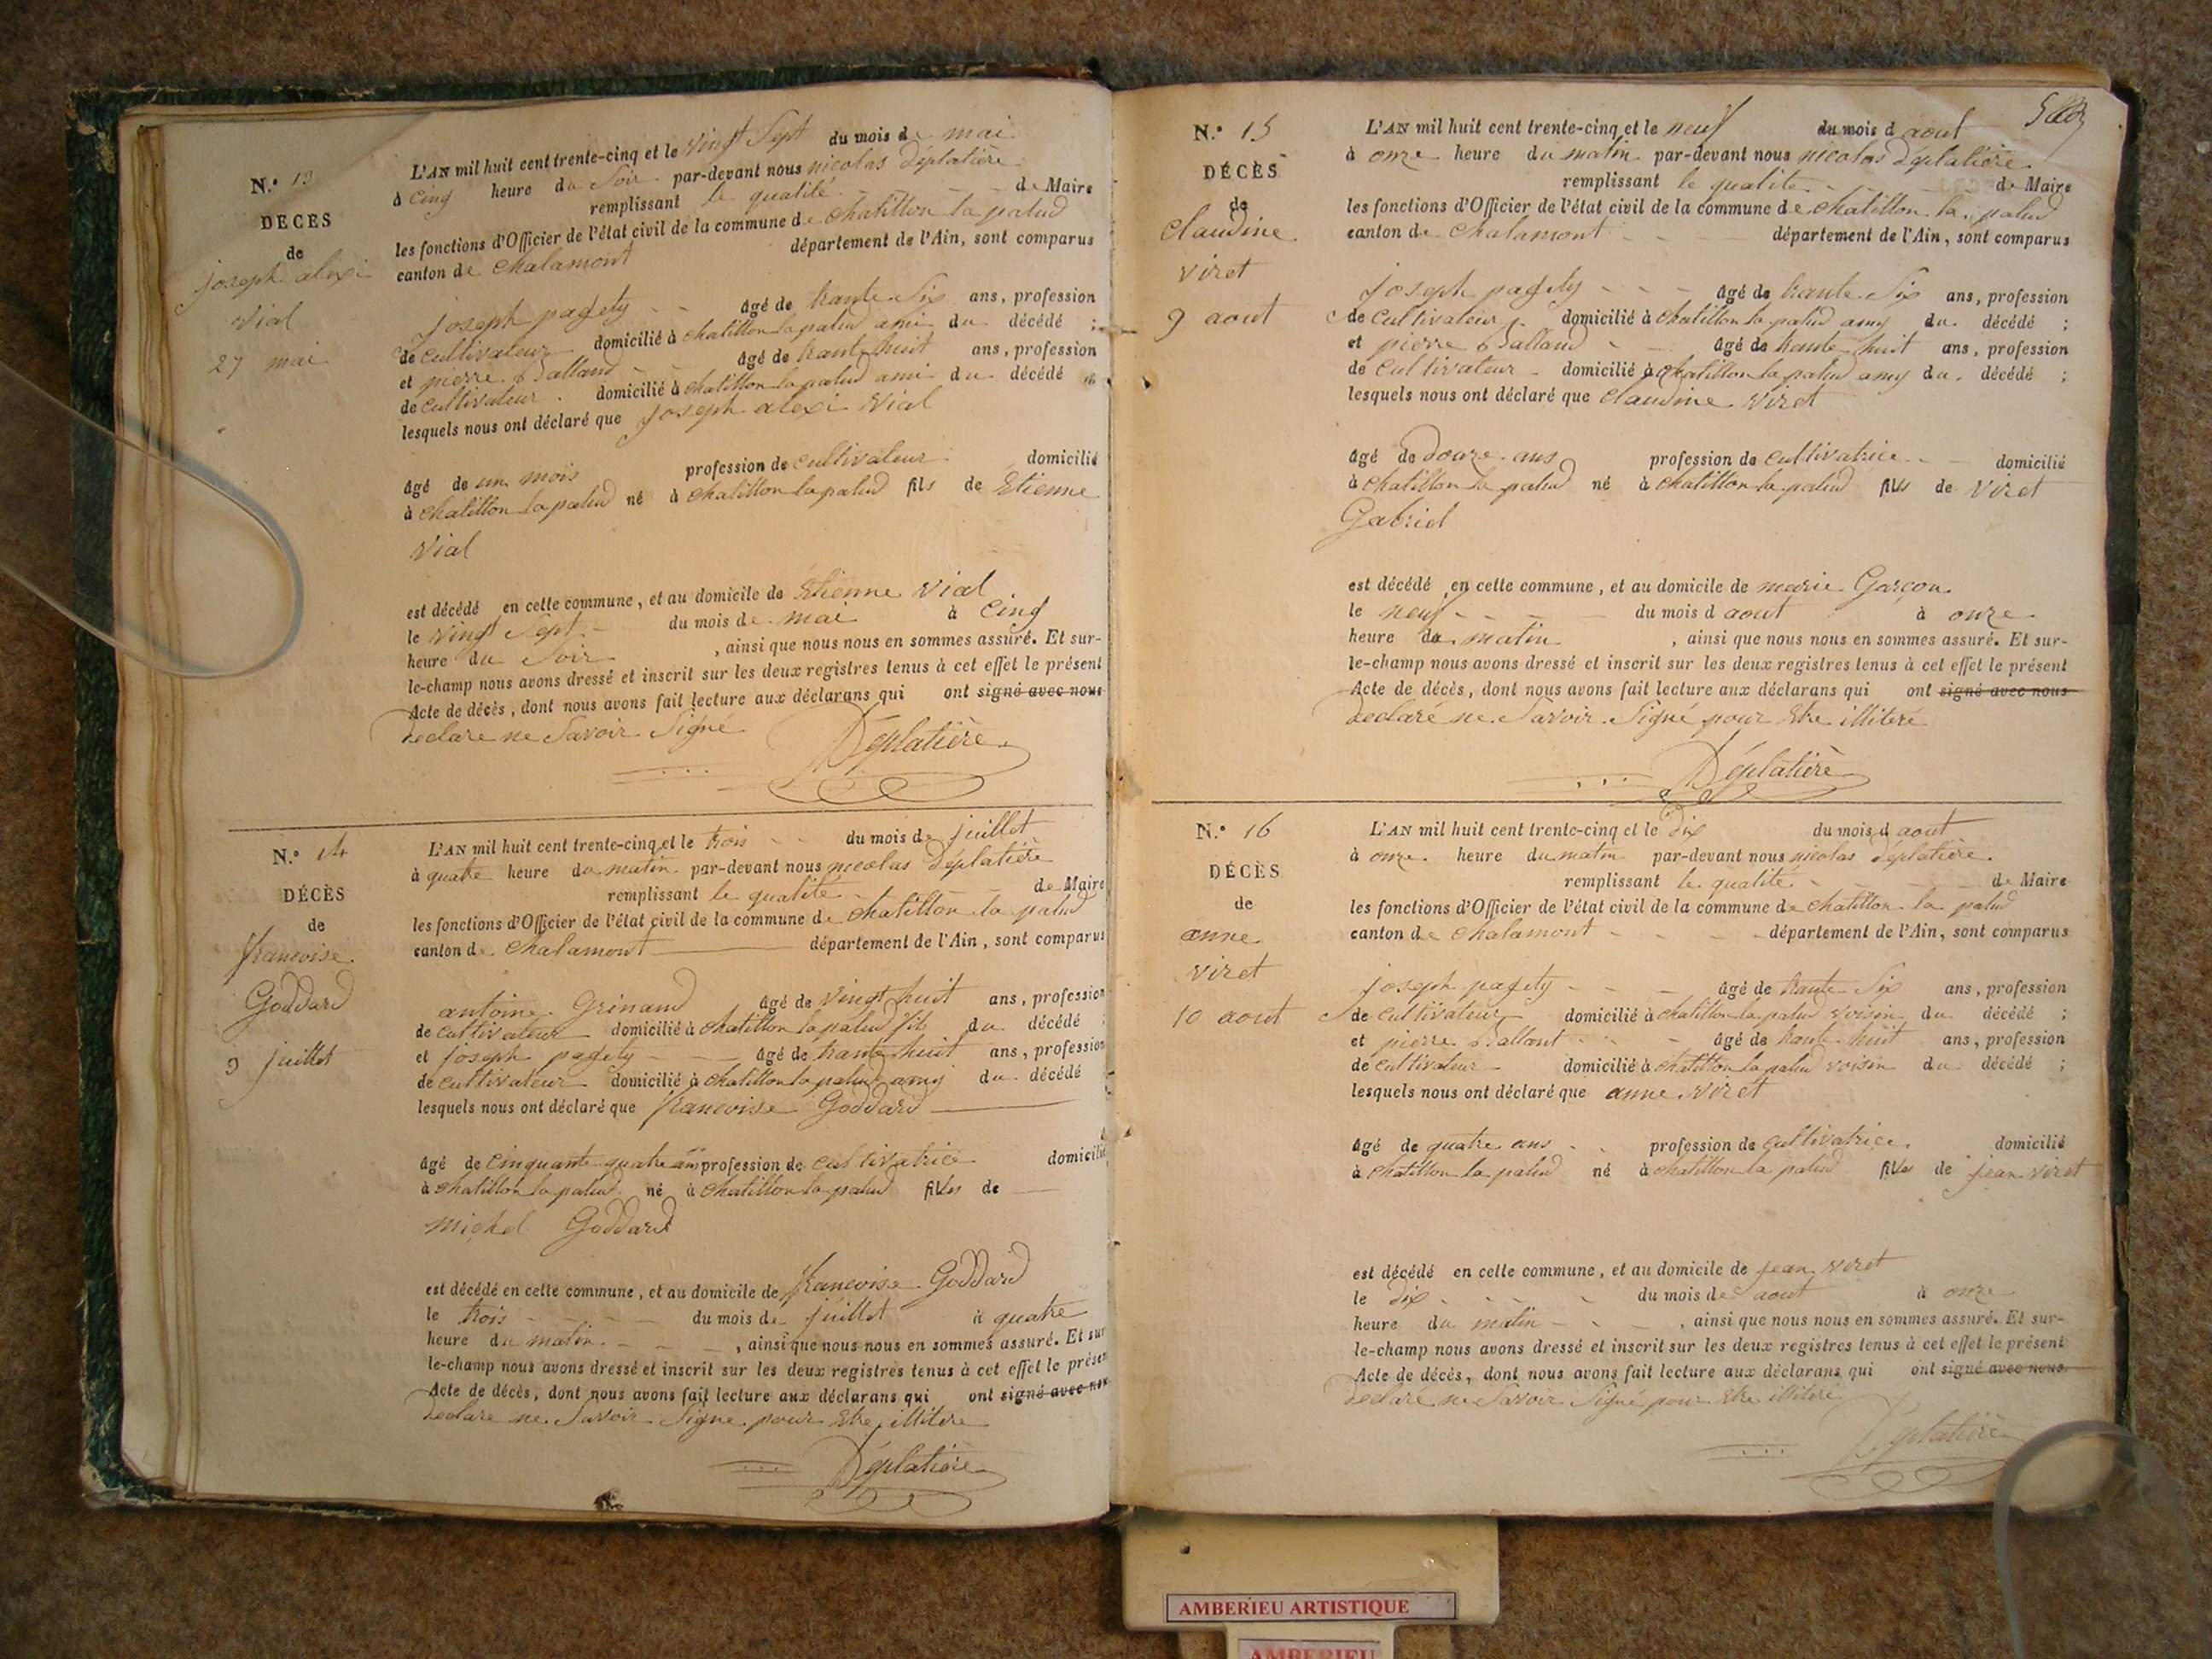 N.° 13
DÉCÈS
de
joseph alexi
vial
27 mai
L'AN mil huit cent trente-cinq et le vingt sept du mois de mai
à cinq heure du soir par-devant nous nicolas Déplatière
remplissant le qualité de Maire
les fonctions d'Officier de l'état civil de la commune de chatillon la palud
canton de chalamont département de l'Ain, sont comparus
joseph pagety âgé de trante six ans, profession
de cultivateur domicilié à chatillon la palud ami du décédé ;
et pierre Balland âgé de trante huit ans, profession
de cultivateur domicilié à chatillon la palud ami du décédé
lesquels nous ont déclaré que joseph alexi vial
âgé de un mois profession de cultivateur domicilié
à chatillon la palud né à chatillon la palud fils de Etienne
vial
est décédé en cette commune, et au domicile de Etienne vial
le vingt sept du mois de mai à cinq
heure du soir , ainsi que nous nous en sommes assuré. Et sur-
le-champ nous avons dressé et inscrit sur les deux registres tenus à cet effet le présent
Acte de décès, dont nous avons fait lecture aux déclarans qui ont signé avec nous
declare ne savoir signé
Déplatière
N.° 14
DÉCÈS
de
francoise
Goddard
9 juillet
L'AN mil huit cent trente-cinq et le trois du mois de juillet
à quatre heure du matin par-devant nous nicolas Déplatière
remplissant le qualité de Maire
les fonctions d'Officier de l'état civil de la commune de chatillon la palud
canton de chalamont département de l'Ain, sont comparus
antoine Grinand âgé de vingt huit ans, profession
de cultivateur domicilié à chatillon la palud fils du décédé ;
et joseph pagety âgé de trante huit ans, profession
de cultivateur domicilié à chatillon la palud amy du décédé
lesquels nous ont déclaré que francoise Goddard
âgé de cinquante quatre ans profession de cultivatrice domicilié
à chatillon la palud né à chatillon la palud filles de
michel Goddard
est décédé en cette commune, et au domicile de francoise Goddard
le trois du mois de juillet à quatre
heure du matin , ainsi que nous nous en sommes assuré. Et sur
le-champ nous avons dressé et inscrit sur les deux registres tenus à cet effet le présen
Acte de décès, dont nous avons fait lecture aux déclarans qui ont signé avec nou
declare ne savoir signe pour Etre illitere
Déplatière
N.° 15
DÉCÈS
de
claudine
viret
9 aout
L'AN mil huit cent trente-cinq et le neuf du mois d aout
à onze heure du matin par-devant nous nicolas Déplatière
remplissant le qualité de Maire
les fonctions d'Officier de l'état civil de la commune de chatillon la palud
canton de chalamont département de l'Ain, sont comparus
joseph pagety âgé de trante six ans, profession
de cultivateur domicilié à chatillon la palud amy du décédé ;
et pierre Balland âgé de trante huit ans, profession
de cultivateur domicilié à chatillon la palud amy du décédé ;
lesquels nous ont déclaré que claudine viret
âgé de Douze ans profession de cultivatrice domicilié
à chatillon la palud né à chatillon la palud fills de viret
Gabriel
est décédé en cette commune, et au domicile de marie Garçon
le neuf du mois d aout à onze
heure du matin , ainsi que nous nous en sommes assuré. Et sur-
le-champ nous avons dressé et inscrit sur les deux registres tenus à cet effet le présent
Acte de décès, dont nous avons fait lecture aux déclarans qui ont signé avec nous
declaré ne savoir signé pour Etre illiteré
Déplatière
N.° 16
DÉCÈS
de
anne
viret
10 aout
L'AN mil huit cent trente-cinq et le dix du mois d aout
à onze heure du matin par-devant nous nicolas Déplatière
remplissant le qualité de Maire
les fonctions d'Officier de l'état civil de la commune de chatillon la palud
canton de chalamont département de l'Ain, sont comparus
joseph pagety âgé de trante six ans, profession
de cultivateur domicilié à chatillon la palud voisin du décédé ;
et pierre Ballant âgé de trante huit ans, profession
de cultivateur domicilié à chatillon la palud voisin du décédé ;
lesquels nous ont déclaré que anne viret
âgé de quatre ans profession de cultivatrice domicilié
à chatillon la palud né à chatillon la palud filles de jean viret
est décédé en cette commune, et au domicile de jean viret
le dix du mois de aout à onze
heure du matin , ainsi que nous nous en sommes assuré. Et sur-
le-champ nous avons dressé et inscrit sur les deux registres tenus à cet effet le présent
Acte de décès, dont nous avons fait lecture aux déclarans qui ont signé avec nous
declaré ne savoir signé pour Etre illiteré
Déplatière
AMBERIEU ARTISTIQUE
AMBERIEU